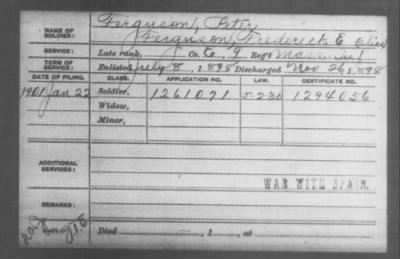 NAME OF SOLDIER: Ferguson, Peter
Ferguson, Frederick E alias
SERVICE: Late rank, Co. E, 9 Reg't Mass. Inf
TERM OF SERVICE: Enlisted July 8, 1898 Discharged Nov 26, 1898
DATE OF FILING. CLASS. APPLICATION NO. LAW. CERTIFICATE NO.
1901 Jan 22 Soldier, 1261071 1294056
Widow,
Minor,
ADDITIONAL SERVICES:
WAR WITH SPAIN.
REMARKS:
Died , 1 , at